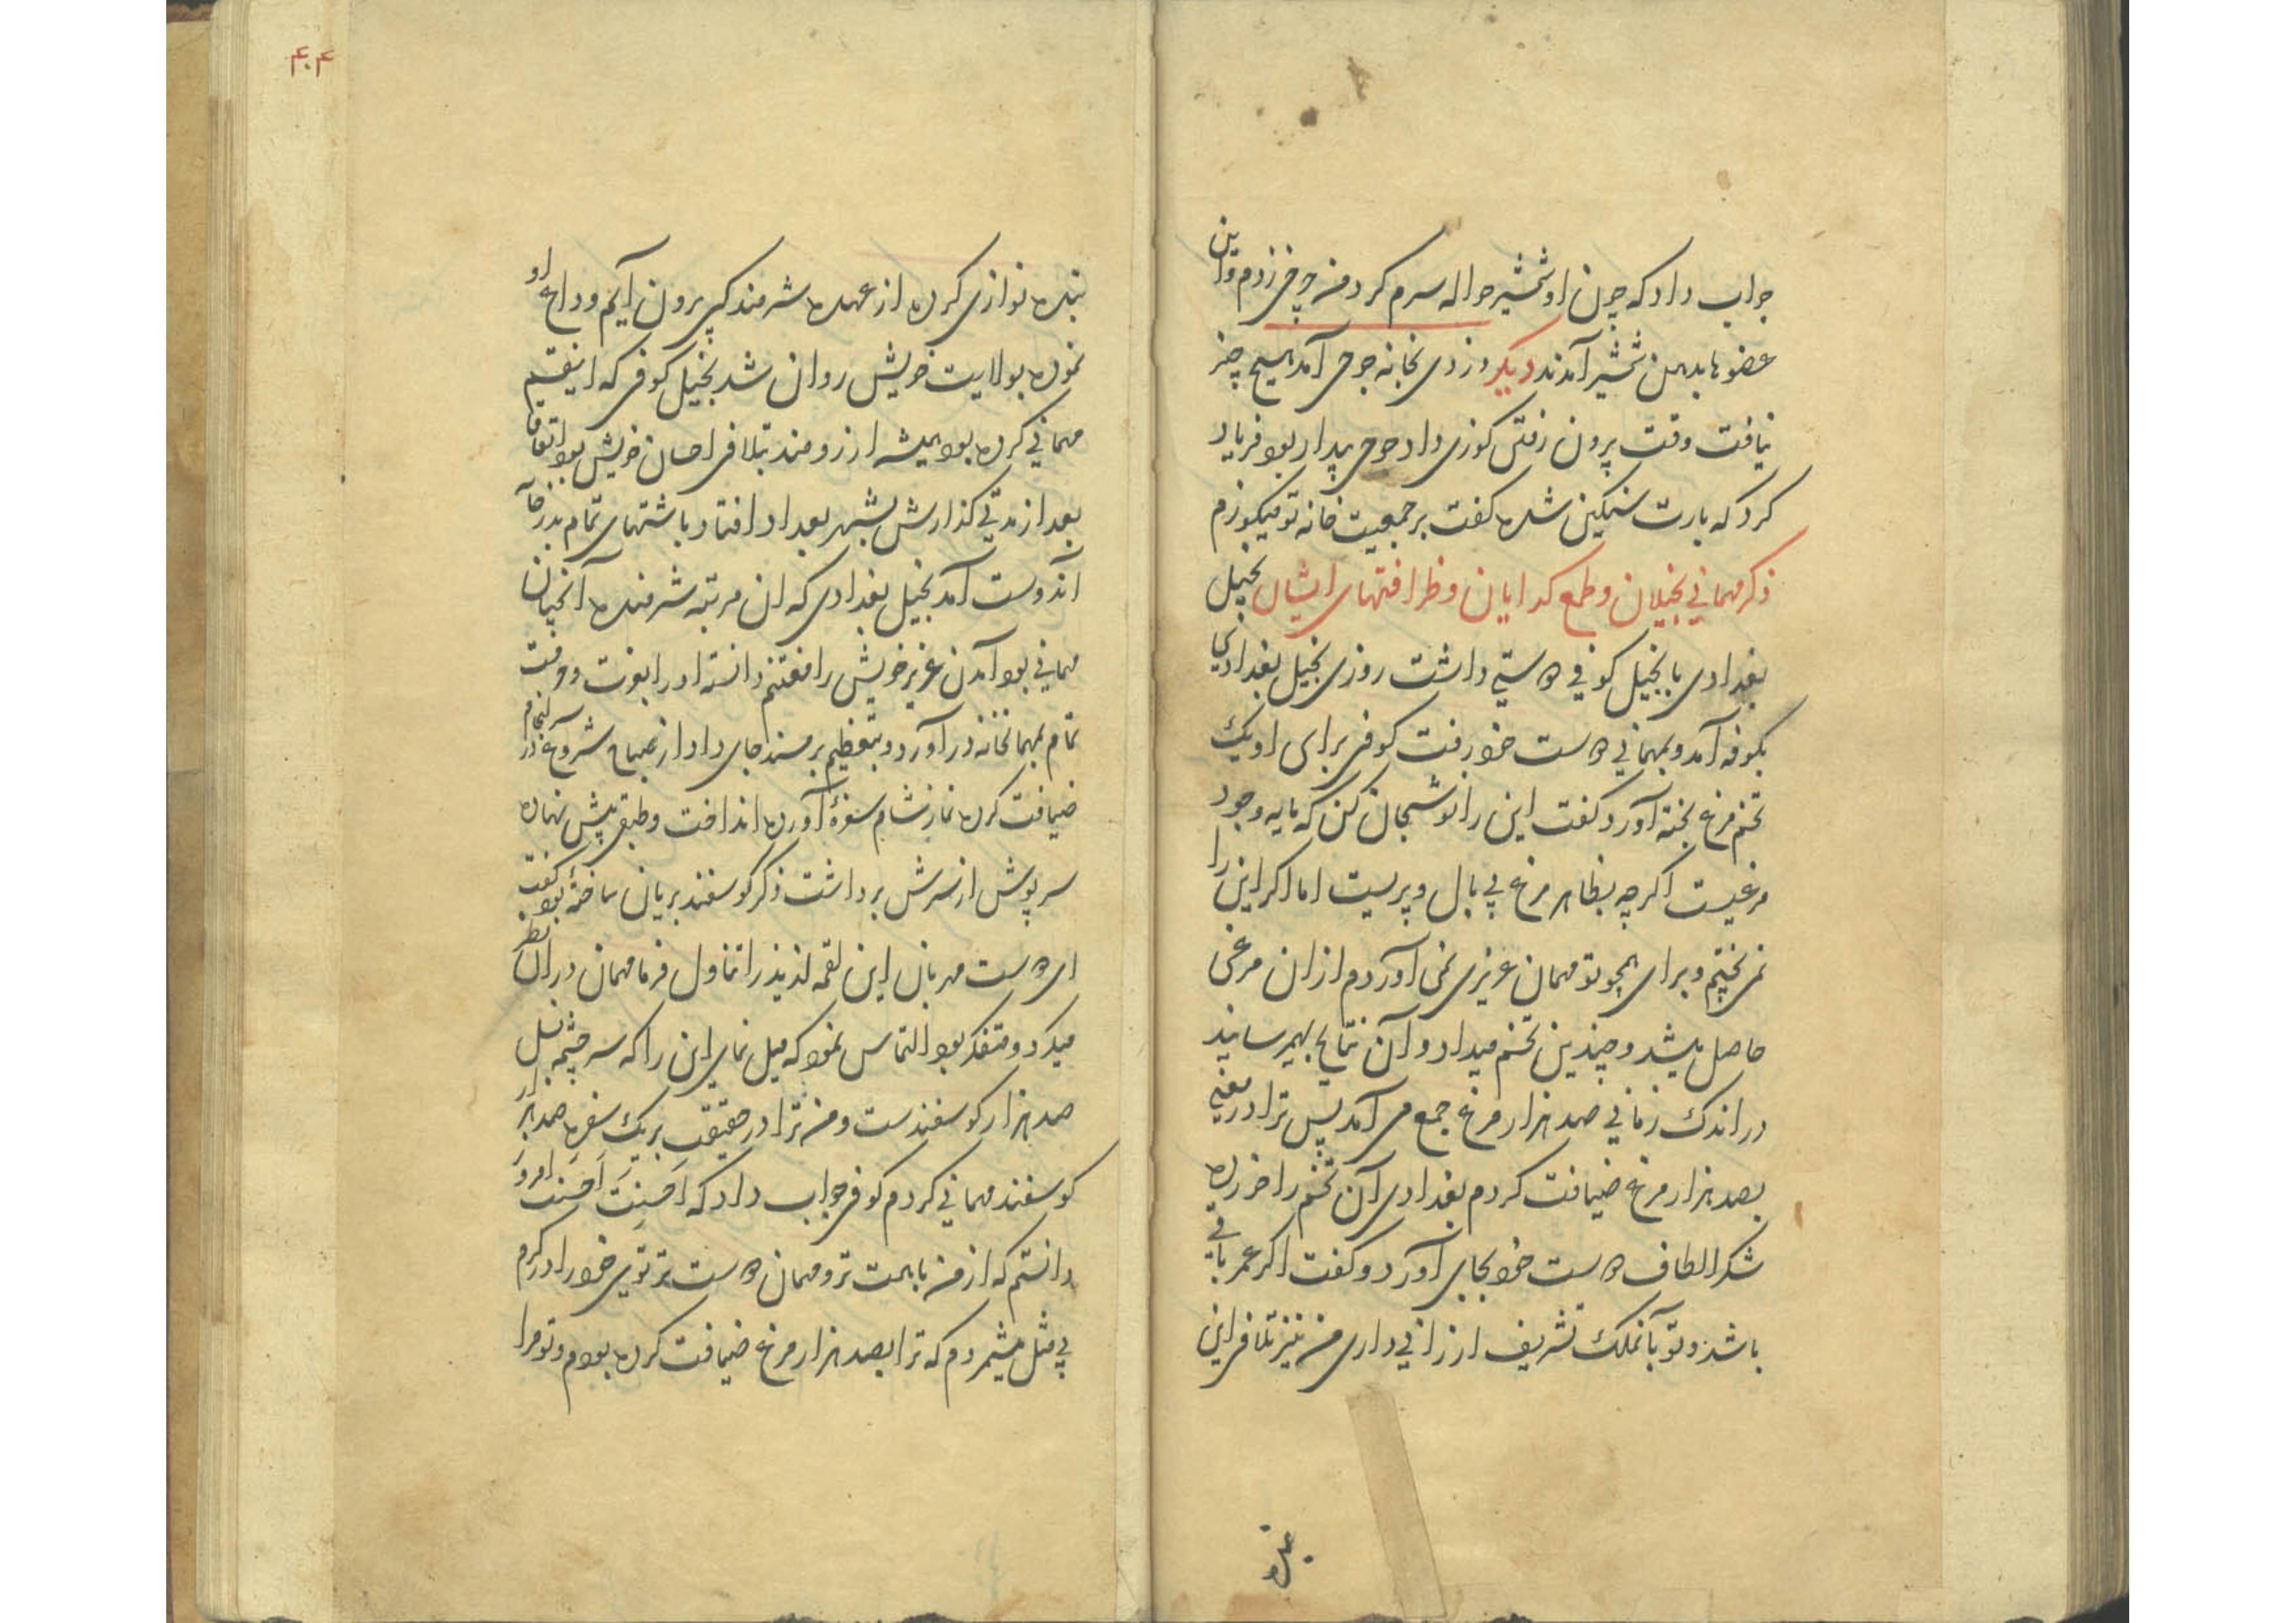 جواب داد که چون او شمشیر حواله سرم کرد من چرخی زدم و این
عضوها بدین شمشیر آمدند دیکر دزدی بخانه جوحی آمد هیچ چیز
نیافت وقت بیرون رفتن کوزی داد جوحی بیدار بود فریاد
کرد که بارت سنکین شده کفت بر جمعیت خانه تو میکوزم
ذکر مهمانی بخیلان و طمع کدایان و ظرافتهای ایشان بخیل
بغدادی با بخیل کوفی دوستی داشت روزی بخیل بغدادی
بکوفه آمد و بمهمانی دوست خود رفت کوفی برای او یک
تخم مرغ پخته آورد و کفت این را نوشجان کن که مایه وجود
مرغیست اکرچه بظاهر مرغ بی بال و پریست اما اکر این را
نمی پختیم و برای همچو تو مهمان عزیزی نمی آوردم از ان مرغی
حاصل میشد و چندین تخم میداد و آن نتایج بهم رسانید
در اندک زمانی صد هزار مرغ جمع می آمد پس ترا در معنی
بصد هزار مرغ ضیافت کردم بغدادی آن تخم را خورده
شکر الطاف دوست خود بجای آورد و کفت اکر عمر باقی
باشد و تو بآنملک تشریف ارزانی داری من نیز تلافی این
بنده
۴۰۴
بنده نوازی کرده از عهده شرمندکی بیرون آیم و وداع او
نموده بولایت خویش روان شد بخیل کوفی که اینقسم
مهمانی کرده بود همیشه ارزومند تلافی احسان خویش بود اتفاقا
بعد از مدتی کذارش بشهر بغداد افتاد باشتهای تمام بدر خانه
آندوست آمد بخیل بغدادی که ان مرتبه شرمنده آنچنان
مهمانی بود آمدن عزیز خویش را مغتنم دانسته او را بعزت و
تمام بمهمانخانه در آورد و بتعظیم بر مسند جای داد از صباح شروع در سرانجام
ضیافت کرده نماز شام سفرهٔ آورده انداخت و طبقی پیش نهاده
سرپوش از سرش برداشت ذکر کوسفند بریان ساخته بود کفت
ای دوست مهربان این لقمه لذیذ را تناول فرما مهمان در ان نظر
میکرد و متفکر بود التماس نمود که میل نمای این را که سرچشمه نسل
صد هزار کوسفندست و من ترا در حقیقت بر یک سفره صد هزار
کوسفند مهمانی کردم کوفی جواب داد که اَحسَنتَ اَحسَنتَ امروز
دانستم که از من باهمت تر و مهمان دوست تر تویی خود را در کرم
بی مثل میشمردم که ترا بصد هزار مرغ ضیافت کرده بودم و تو مرا